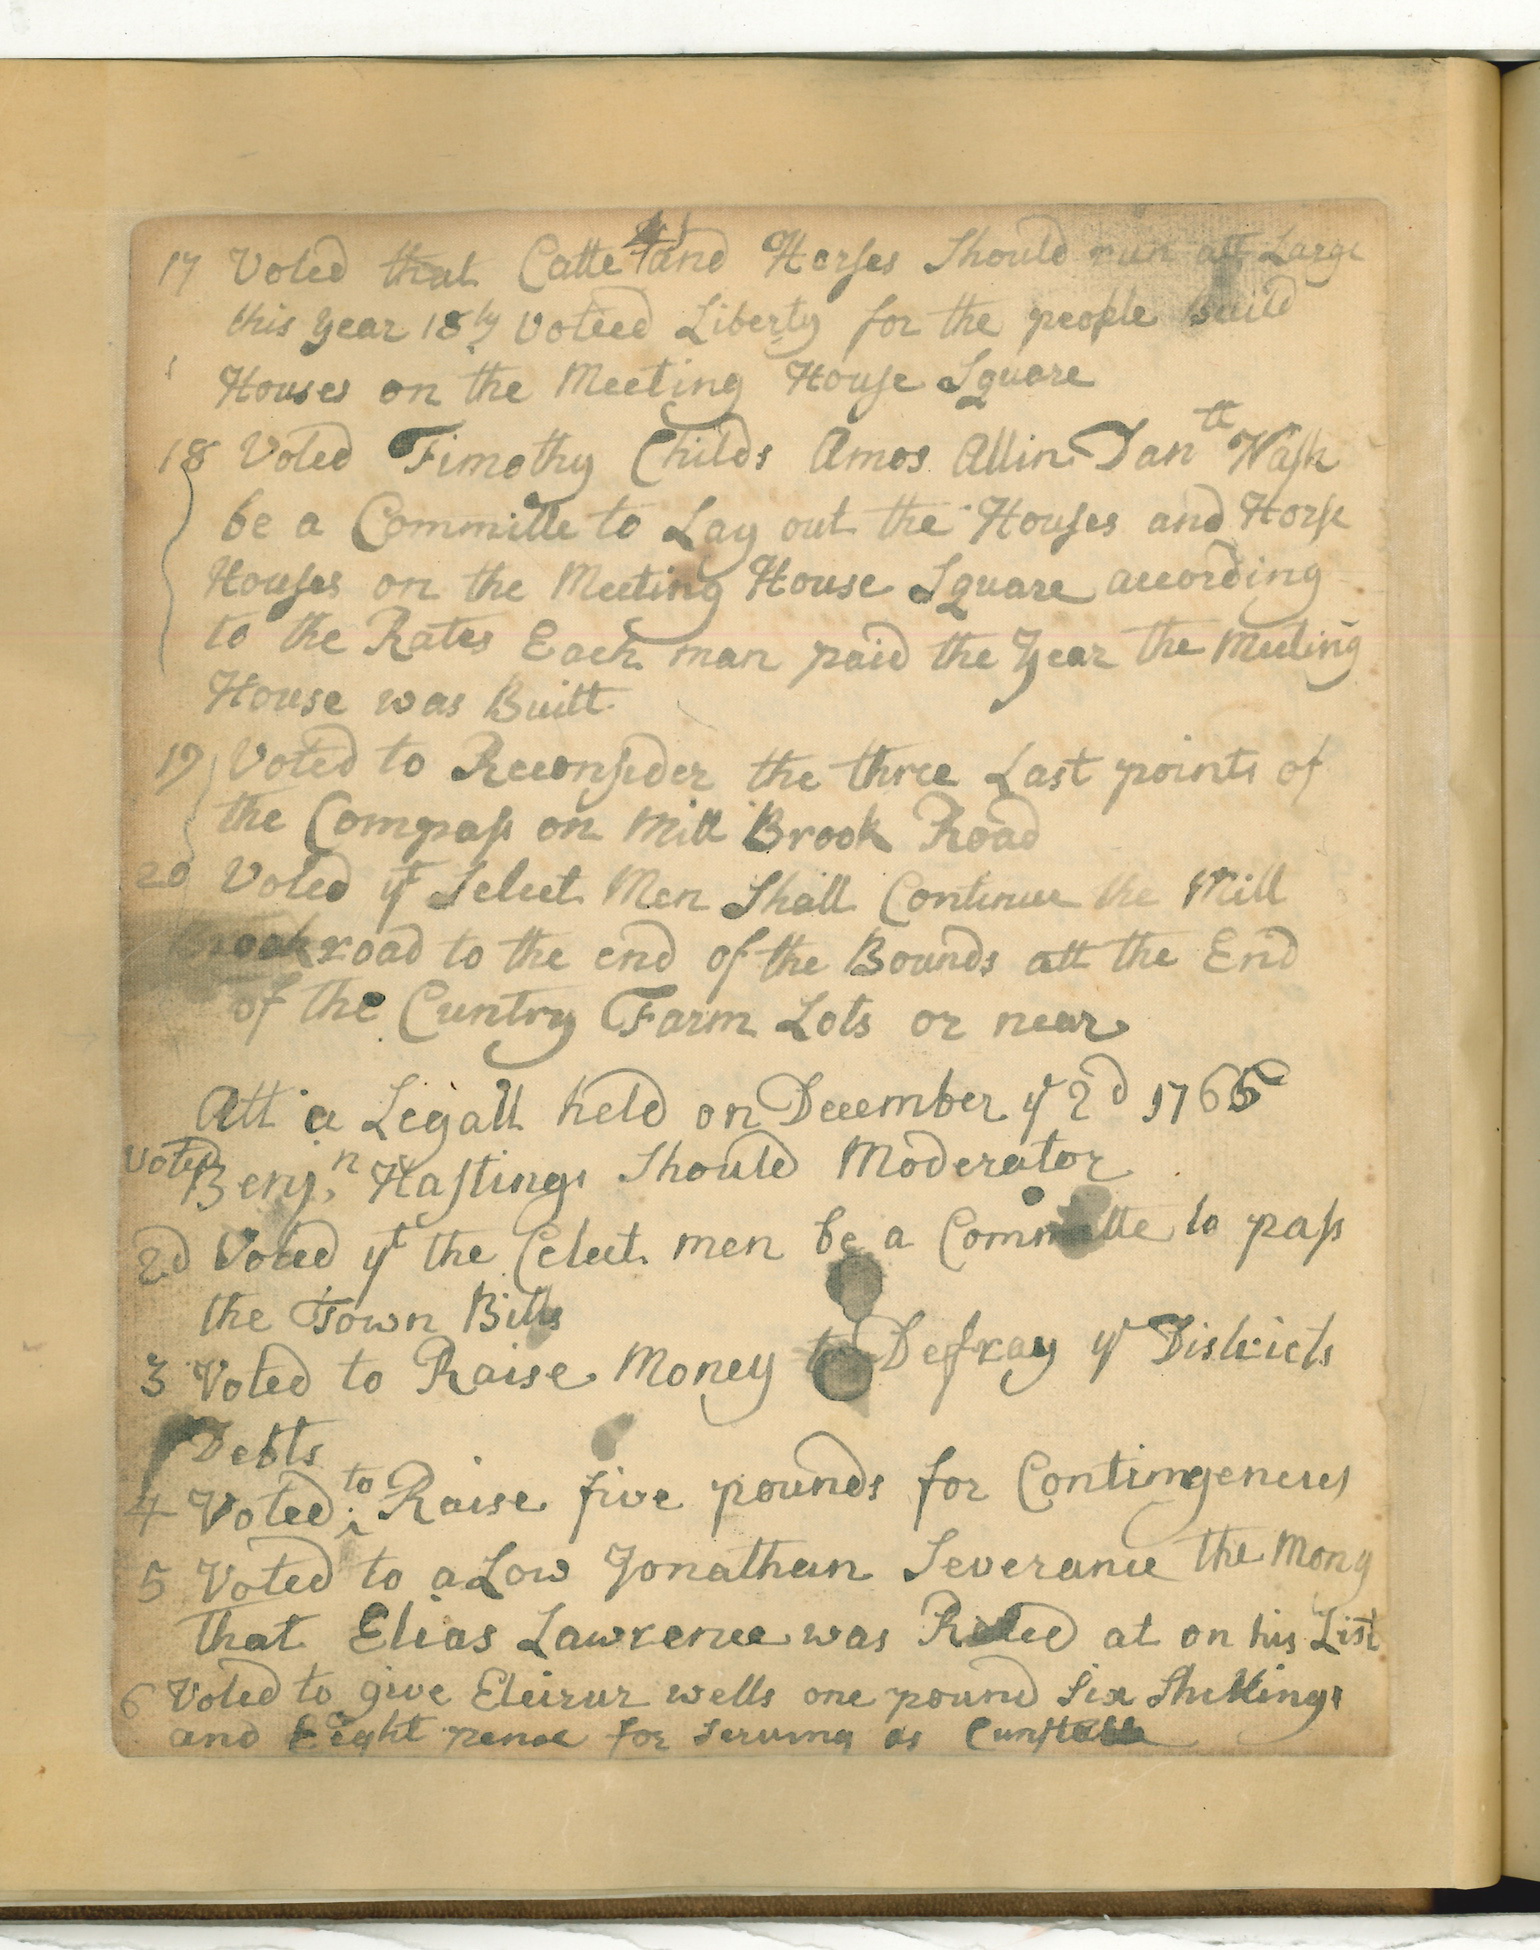 17 Voted that Catte and Horses Should run att Large
this Year 18ly Voteed Liberty for the people Build
Houses on the Meeting House Square
18 Voted Timothy Childs Amos Allin Dan ll Nash
be a Committe to Lay out the Houses and Horse
Houses on the Meeting House Square according
to the Rates Each man paid the Year the Meeting
House was Built
19 Voted to Reconsider the three Last points of
the Compass on Mill Brook Road
20 Voted yt Select Men Shall Continue the Mill
Brook road to the end of the Bounds att the End
of the Cuntry Farm Lots or near
Att a Legall held on December ye 2d 1765
Voted Benj,n Hastings Should Moderator
2d Voted yt the Celect men be a Committe to pass
the Town Bills
3 Voted to Raise Money to Defray ye Districts
Debts
4 Voted to Raise five pounds for Contingencies
5 Voted to a Low Jonathan Severance the Mony
that Elias Lawrence was Rated at on his List
6 Voted to give Eleizur wells one pound Six Shillings
and Eight pence for serving as Cunstable